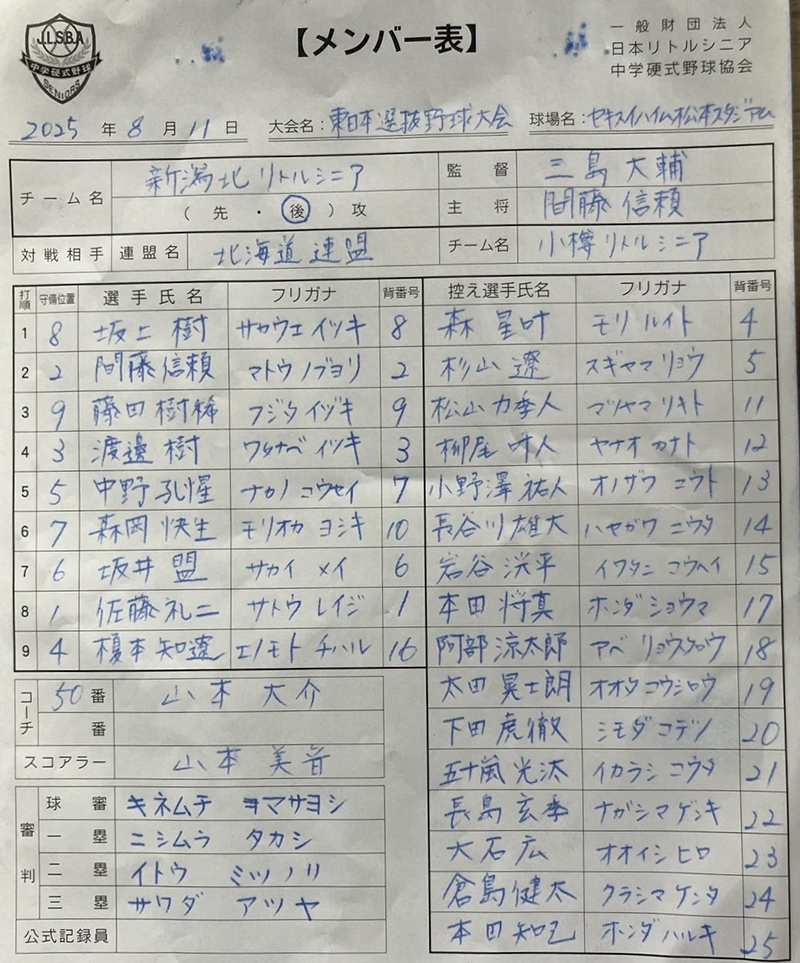 J.L.S.B.A
中学硬式野球
SENIORS
【メンバー表】
一般財団法人
日本リトルシニア
中学硬式野球協会
2025 年 8 月 11 日 大会名：東日本選抜野球大会 球場名：セキスイハイム松本スタジアム
チーム名 新潟北リトルシニア
（ 先 ・ 後 ）攻
監督 三島 大輔
主将 間藤 信頼
対戦相手 連盟名 北海道連盟 チーム名 小樽リトルシニア
打順 守備位置 選手氏名 フリガナ 背番号
1 8 坂上 樹 サカウエ イツキ 8
2 2 間藤 信頼 マトウ ノブヨリ 2
3 9 藤田 樹稀 フジタ イヅキ 9
4 3 渡邉 樹 ワタナベ イツキ 3
5 5 中野 孔惺 ナカノ コウセイ 7
6 7 森岡 快生 モリオカ ヨシキ 10
7 6 坂井 盟 サカイ メイ 6
8 1 佐藤 礼二 サトウ レイジ 1
9 4 榎本 知遼 エノモト チハル 16
控え選手氏名 フリガナ 背番号
森 星叶 モリ ルイト 4
杉山 遼 スギヤマ リョウ 5
松山 力季人 マツヤマ リキト 11
柳尾 叶人 ヤナオ カナト 12
小野澤 祐人 オノザワ ユウト 13
長谷川 雄大 ハセガワ ユウタ 14
岩谷 洸平 イワタニ コウヘイ 15
本田 将真 ホンダ ショウマ 17
阿部 涼太郎 アベ リョウタロウ 18
太田 晃士朗 オオタ コウシロウ 19
下田 虎徹 シモダ コテツ 20
五十嵐 光汰 イカラシ コウタ 21
長島 玄季 ナガシマ ゲンキ 22
大石 広 オオイシ ヒロ 23
倉島 健太 クラシマ ケンタ 24
本田 知己 ホンダ ハルキ 25
コーチ 50 番 山本 大介
番
スコアラー 山本 美音
審判
球審 キネムチ ヨマサヨシ
一塁 ニシムラ タカシ
二塁 イトウ ミツノリ
三塁 サワダ アツヤ
公式記録員